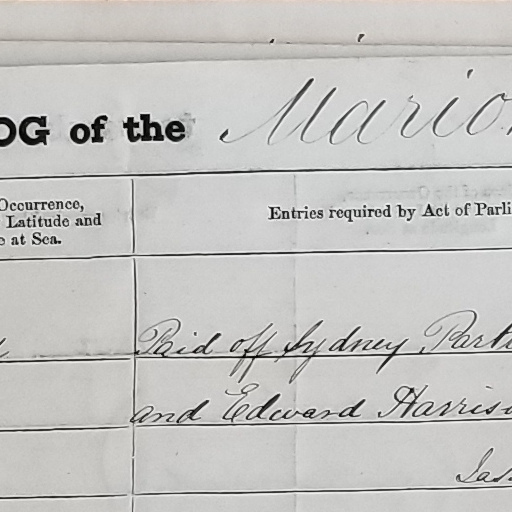 OG of the Mario
Occurrence,
Latitude and
e at Sea.
Entries required by Act of Parli
Paid off Sydney Part
and Edward Harriso
Jas